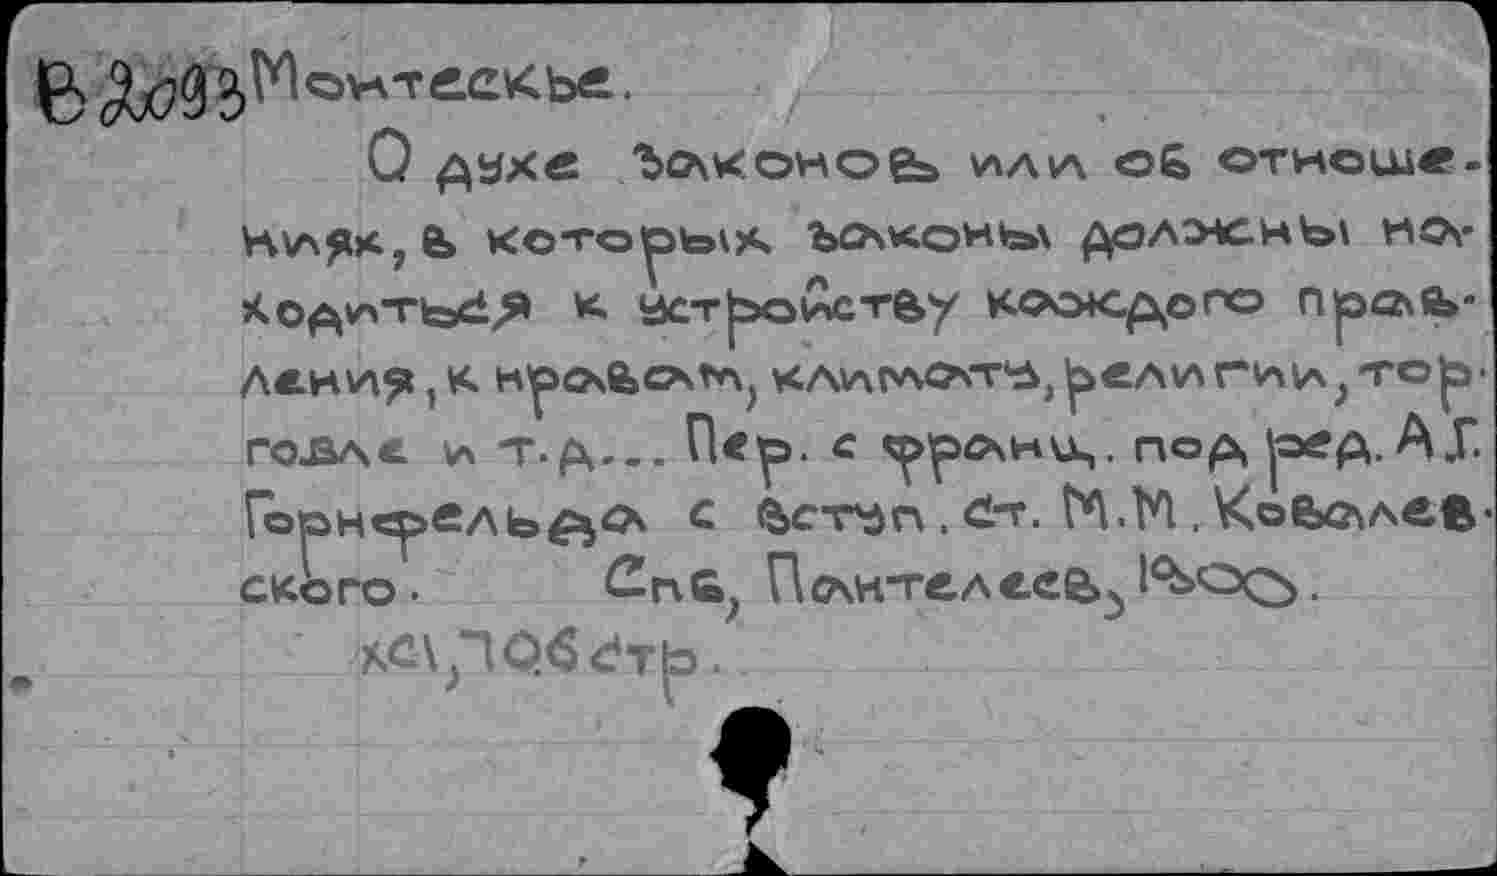 Монтескье.
О духе законов или об отноше-
ниях, в которых законы должны на-
ходиться к устройству каждого прав-
ления, к нравам, климату, религии, тор-
говле и т.д... Пер. с франц. под ред. А.Г.
Горнфельда с вступ. ст. М.М. Ковалев-
ского. Спб, Пантелеев, 1900.
706 стр.